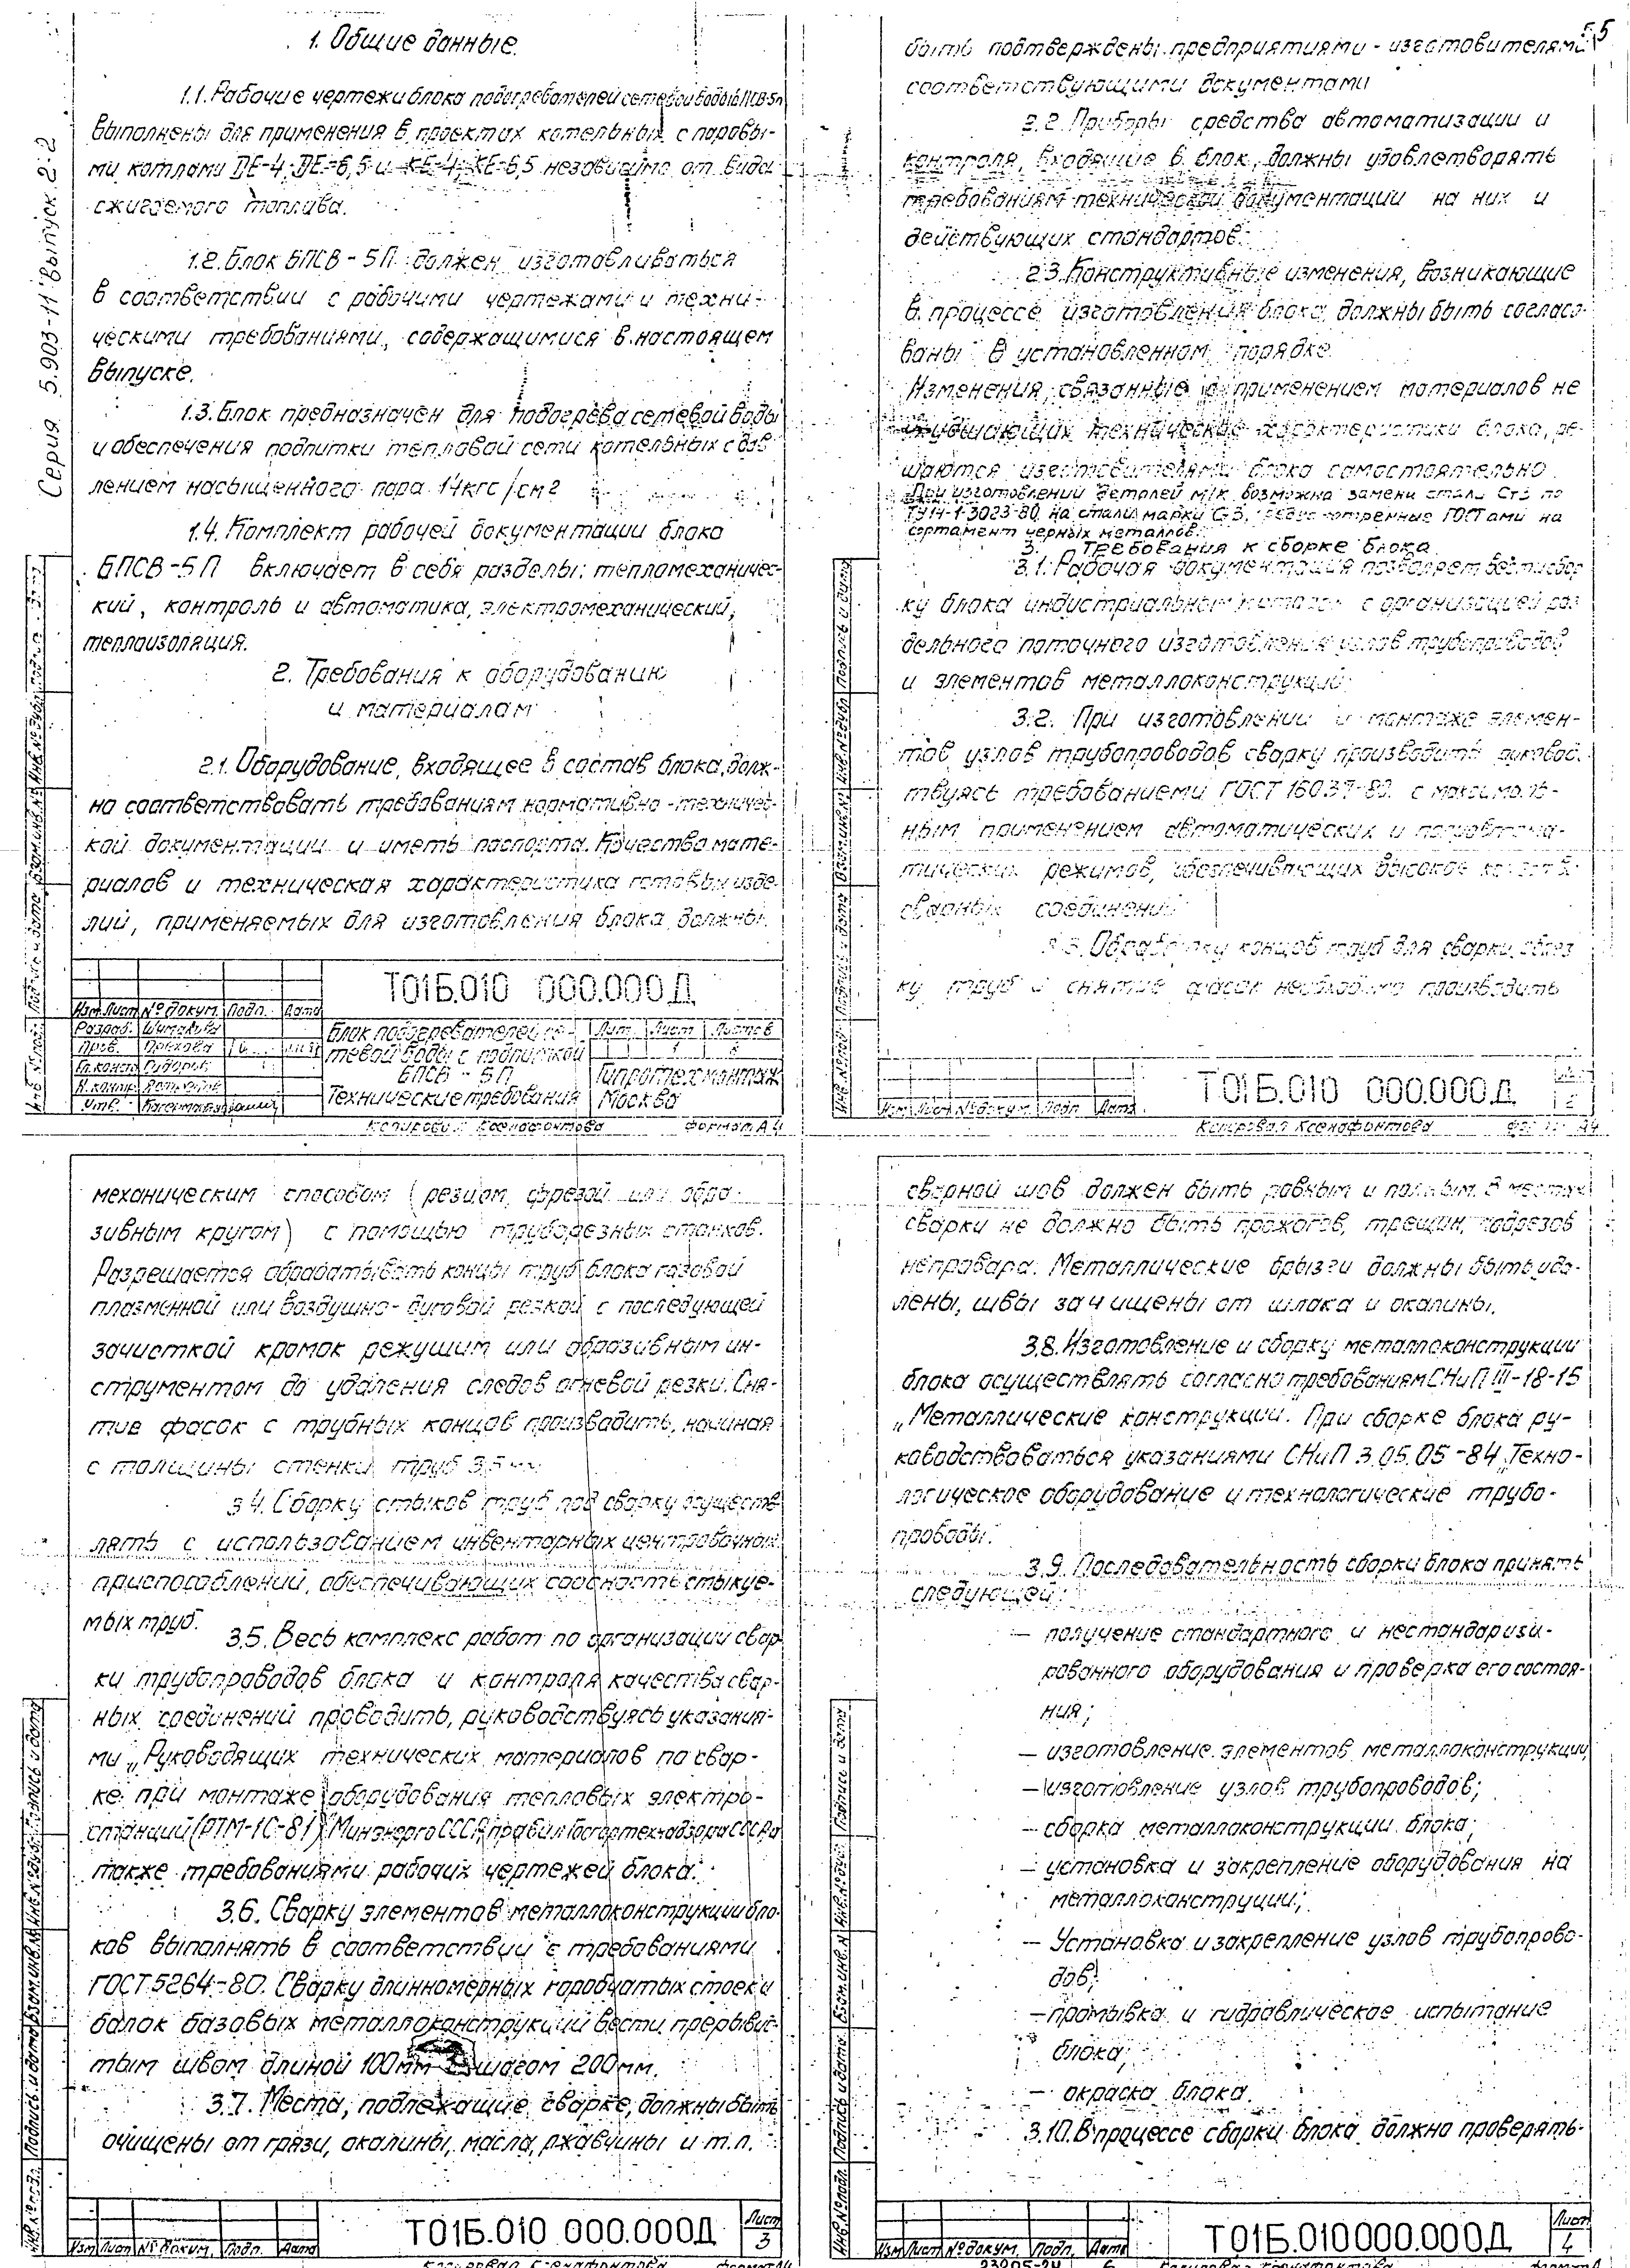 5
Серия 5.903-11 Выпуск 2-2
1. Общие данные.
1.1. Рабочие чертежи блока подогревателей сетевой воды БПСВ-5п
выполнены для применения в проектах котельных с паровы-
ми котлами ДЕ-4; ДЕ-6,5 и КЕ-4; КЕ-6,5 независимо от вида
сжигаемого топлива.
1.2. Блок БПСВ-5П должен изготавливаться
в соответствии с рабочими чертежами и техни-
ческими требованиями, содержащимися в настоящем
выпуске.
1.3. Блок предназначен для подогрева сетевой воды
и обеспечения подпитки тепловой сети котельных с дав-
лением насыщенного пара 14кгс/см2
1.4. Комплект рабочей документации блока
БПСВ-5П включает в себя разделы: тепломеханичес-
кий, контроль и автоматика, электромеханический,
теплоизоляция.
2. Требования к оборудованию
и материалам
2.1. Оборудование, входящее в состав блока, долж-
но соответствовать требованиям нормативно-техничес-
кой документации и иметь паспорта. Качество мате-
риалов и техническая характеристика готовых изде-
лий, применяемых для изготовления блока, должны
Т01Б.010 000.000Д
Изм Лист № докум. Подп. Дата
Разраб.
Пров. Орехова
Гл.констр
Н.контр.
Утв.
Блок подогревателей се-
тевой воды с подпиткой
БПСВ-5П
Технические требования
Лит. Лист Листов
1
Гипротехмонтаж
Москва
Копировал Ксенофонтова формат А4
быть подтверждены предприятиями-изготовителями
соответствующими документами
2.2. Приборы средства автоматизации и
контроля, входящие в блок, должны удовлетворять
требованиям технической документации на них и
действующих стандартов.
2.3. Конструктивные изменения, возникающие
в процессе изготовления блока, должны быть согласо-
ваны в установленном порядке.
Изменения, связанные с применением материалов не
ухудшающих технические характеристики блока, ре-
шаются изготовителями блока самостоятельно.
При изготовлении деталей м/к возможна замена стали Ст3 по
ТУ14-1-3023-80 на стали марки Ст3, предусмотренные ГОСТами на
сортамент черных металлов.
3. Требования к сборке блока
3.1. Рабочая документация позволяет вести сбор-
ку блока индустриальным методом с организацией раз-
дельного поточного изготовления узлов трубопроводов
и элементов металлоконструкций.
3.2. При изготовлении и монтаже элемен-
тов узлов трубопроводов сварку производить руковод-
твуясь требованиеми ГОСТ 16037-80 с максималь-
ным применением автоматических и полуавтома-
тических режимов, обеспечивающих высокое качество
сварных соединений
3.3. Обработку концов труб для сварки, обрез
ку труб и снятие фасок необходимо производить
Т01Б.010 000.000Д
2
Изм Лист № докум. Подп. Дата
Копировал Ксенофонтова формат А4
механическим способом (резцом, фрезой или абра-
зивным кругом) с помощью труборезных станков.
Разрешается обрабатывать концы труб блока газовой
плазменной или воздушно-дуговой резкой с последующей
зачисткой кромок режущим или абразивным ин-
струментом до удаления следов огневой резки. Сня-
тие фасок с трубных концов производить, начиная
с толщины стенки труб 3,5 мм
3.4. Сборку стыков труб под сварку осуществ-
лять с использованием инвентарных центровочных
приспособлений, обеспечивающих соосность стыкуе-
мых труб.
3.5. Весь комплекс работ по организации свар-
ки трубопроводов блока и контроля качества свар-
ных соединений проводить, руководствуясь указания-
ми „Руководящих технических материалов по свар-
ке при монтаже оборудования тепловых электро-
станций (РТМ-1С-81)" Минэнерго СССР, правил Госгортехнадзора СССР, а
также требованиями рабочих чертежей блока.
3.6. Сварку элементов металлоконструкции бло-
ков выполнять в соответствии с требованиями
ГОСТ 5264-80. Сварку длинномерных коробчатых стоек и
балок базовых металлоконструкций вести прерывис-
тым швом длиной 100мм с шагом 200мм.
3.7. Места, подлежащие сварке, должны быть
очищены от грязи, окалины, масла, ржавчины и т.п.
Т01Б.010 000.000Д
Лист
3
Изм Лист № докум. Подп. Дата
Копировал Ксенофонтова формат А4
сварной шов должен быть ровным и полным. В местах
сварки не должно быть прожогов, трещин, подрезов
непровара. Металлические брызги должны быть уда-
лены, швы зачищены от шлака и окалины.
3.8. Изготовление и сборку металлоконструкции
блока осуществлять согласно требованиям СНиП III-18-15
„Металлические конструкции." При сборке блока ру-
ководствоваться указаниями СНиП 3.05.05-84 „Техно-
логическое оборудование и технологические трубо-
проводы."
3.9. Последовательность сборки блока принять
следующей:
— получение стандартного и нестандартизи-
рованного оборудования и проверка его состоя-
ния;
— изготовление элементов металлоконструкции;
— изготовление узлов трубопроводов;
— сборка металлоконструкции блока;
— установка и закрепление оборудования на
металлоконструции;
— Установка и закрепление узлов трубопрово-
дов;
— промывка и гидравлическое испытание
блока;
— окраска блока.
3.10. В процессе сборки блока должно проверять-
Т01Б.010 000.000Д
Лист
4
Изм Лист № докум. Подп. Дата